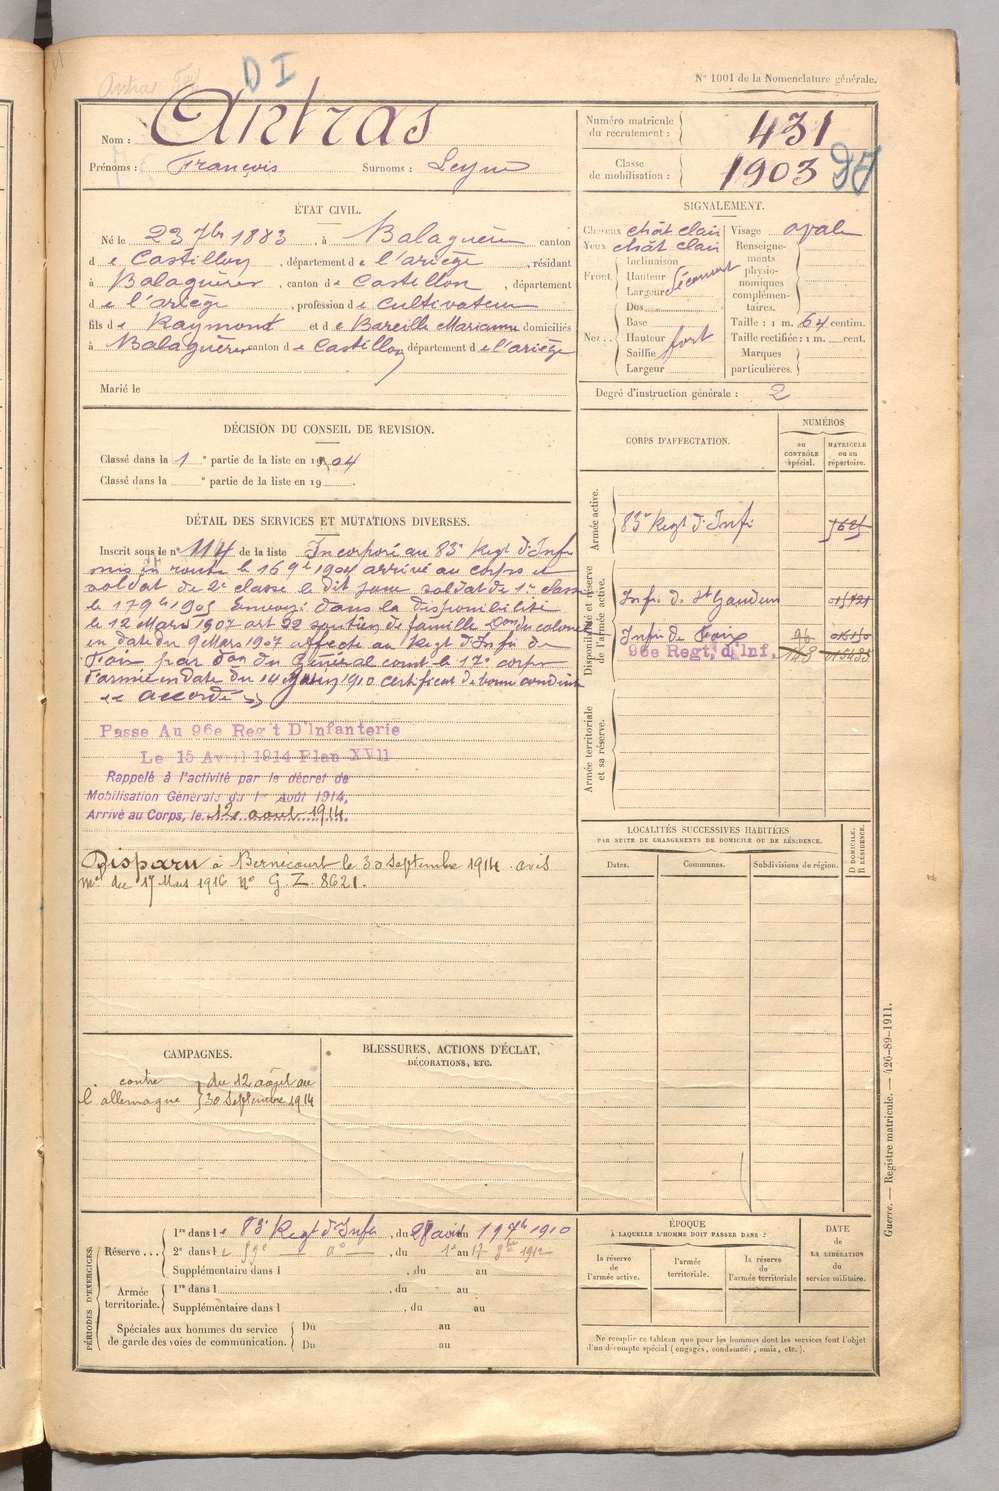 D I
N° 1001 de la Nomenclature générale.
Nom : Antras
Prénoms : François Surnoms :
Numéro matricule du recrutement : 431
Classe de mobilisation : 1903
ÉTAT CIVIL.
Né le 23 7bre 1883, à Balaguères canton
de Castillon, département de l'ariège, résidant
à Balaguères, canton de Castillon, département
de l'ariège, profession de cultivateur
fils de Raymond et de Bareille Marianne domiciliés
à Balaguères canton de Castillon département de l'ariège
Marié le
SIGNALEMENT.
Cheveux chât clair Visage ovale
Yeux chât clair Renseignements physionomiques complémentaires.
Front Inclinaison
Hauteur
Largeur
Nez.. Dos
Base
Hauteur fort
Saillie
Largeur
Taille : 1 m. 64 centim.
Taille rectifiée : 1 m. cent.
Marques particulières.
Degré d'instruction générale : 2
DÉCISION DU CONSEIL DE REVISION.
Classé dans la 1e partie de la liste en 1904
Classé dans la e partie de la liste en 19 .
CORPS D'AFFECTATION.
NUMÉROS
au CONTRÔLE spécial.
MATRICULE ou au répertoire.
Armée active.
83e Regt d'Infie
Disponibilité et réserve de l'armée active.
Infie de St Gaudens
Infie de Foix
96e Regt, d'Inf.
Armée territoriale et sa réserve.
DÉTAIL DES SERVICES ET MUTATIONS DIVERSES.
Inscrit sous le n° 114 de la liste Incorporé au 83e Regt d'Infie
mis en route le 16 9bre 1904 arrivé au corps et
soldat de 2e classe le dit jour soldat de 1re classe
le 17 9bre 1905 Envoyé dans la disponibilité
le 12 Mars 1907 art 32 soutien de famille Don du colonel
en date du 9 Mars 1907 affecté au Regt d'Infie de
Foix par don du Général comt le 17e corps
d'armée en date du 14 1910 certificat de bonne conduite
accordé
Passe Au 96e Reg't D'Infanterie
Le 15 Avril 1914 Plan XVII
Rappelé à l'activité par le décret de
Mobilisation Générale du 1er Août 1914,
Arrivé au Corps, le 12 août 1914.
Disparu à Bernécourt le 30 Septembre 1914 avis
mel du 17 Mars 1916 N° G. Z. 8621.
LOCALITÉS SUCCESSIVES HABITÉES
PAR SUITE DE CHANGEMENTS DE DOMICILE OU DE RÉSIDENCE.
Dates. Communes. Subdivisions de région.
D DOMICILE. R RÉSIDENCE.
CAMPAGNES.
contre l'allemagne du 12 août au 30 Septembre 1914
BLESSURES, ACTIONS D'ÉCLAT,
DÉCORATIONS, ETC.
PÉRIODES D'EXERCICES.
Réserve... 1re dans le 83e Regt d'Infie, du au 19 7bre 1910
2e dans le, du 1er au 17 8bre 1912
Supplémentaire dans l , du au
Armée territoriale. 1re dans l , du au
Supplémentaire dans l , du au
Spéciales aux hommes du service de garde des voies de communication. Du au
Du au
ÉPOQUE
À LAQUELLE L'HOMME DOIT PASSER DANS :
la réserve de l'armée active.
l'armée territoriale.
la réserve de l'armée territoriale
DATE DE LA LIBÉRATION du service militaire.
Ne remplir ce tableau que pour les hommes dont les services font l'objet
d'un décompte spécial (engagés, condamnés, omis, etc.).
Guerre. — Registre matricule. — 426-89-1911.